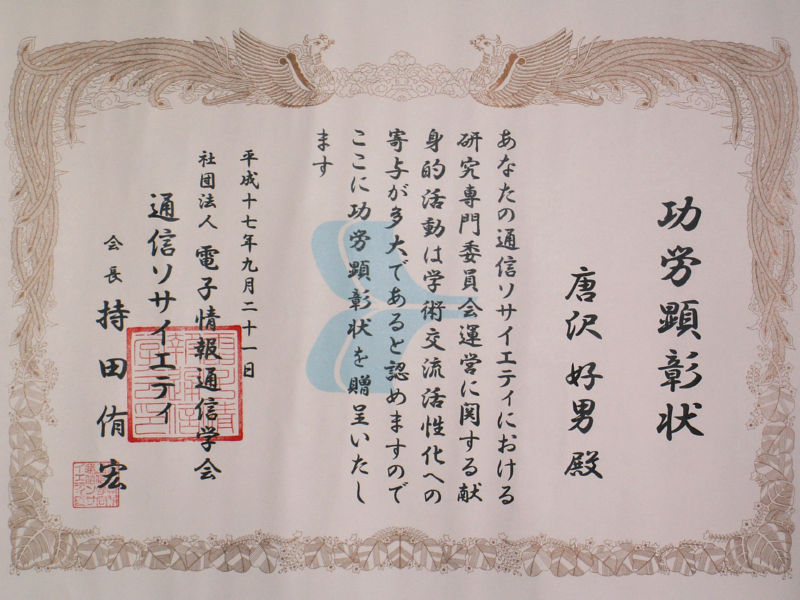 功労顕彰状
唐沢好男殿
あなたの通信ソサイエティにおける
研究専門委員会運営に関する献
身的活動は学術交流活性化への
寄与が多大であると認めますので
ここに功労顕彰状を贈呈いたし
ます
平成十七年九月二十一日
社団法人 電子情報通信学会
通信ソサイエティ
会長 持田侑宏